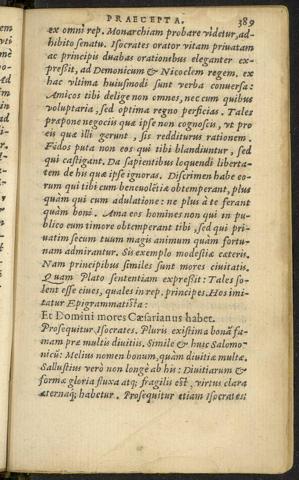 PRAECEPTA. 389
ex omni rep. Monarchiam probare videtur, ad-
hibito senatu. Isocrates orator vitam priuatam
ac principis duabus orationibus eleganter ex-
pressit, ad Demonicum & Nicoclem regem. ex
hac vltima huiusmodi sunt verba conuersa:
Amicos tibi delige non omnes, nec cum quibus
voluptaria, sed optima regno perficias. Tales
præpone negociis quæ ipse non cognoscis, vt pro
eis quæ illi gerunt, sis redditurus rationem.
Fidos puta non eos qui tibi blandiuntur, sed
qui castigant. Da sapientibus loquendi liberta-
tem de his quæ ipse ignoras. Discrimen habe eo-
rum qui tibi cum beneuolẽtia obtemperant, plus
quàm qui cum adulatione: ne plus à te ferant
quàm boni. Ama eos homines non qui in pu-
blico cum timore obtemperant tibi, sed qui pri-
uatim secum tuum magis animum quàm fortu-
nam admirantur. Sis exemplo modestiæ cæteris.
Nam principibus similes sunt mores ciuitatis.
Quam Plato sententiam expressit: Tales so-
lent esse ciues, quales in rep. principes. Hos imi-
tatur Epigrammatista:
Et Domini mores Cæsarianus habet.
Prosequitur Isocrates. Pluris existima bonã fa-
mam præ multis diuitiis. Simile & huic Salomo-
nicũ: Melius nomen bonum, quàm diuitiæ multæ.
Sallustius verò non longè ab his: Diuitiarum &
formæ gloria fluxa atq; fragilis est, virtus clara
æternaq; habetur. Prosequitur etiam Isocrates: